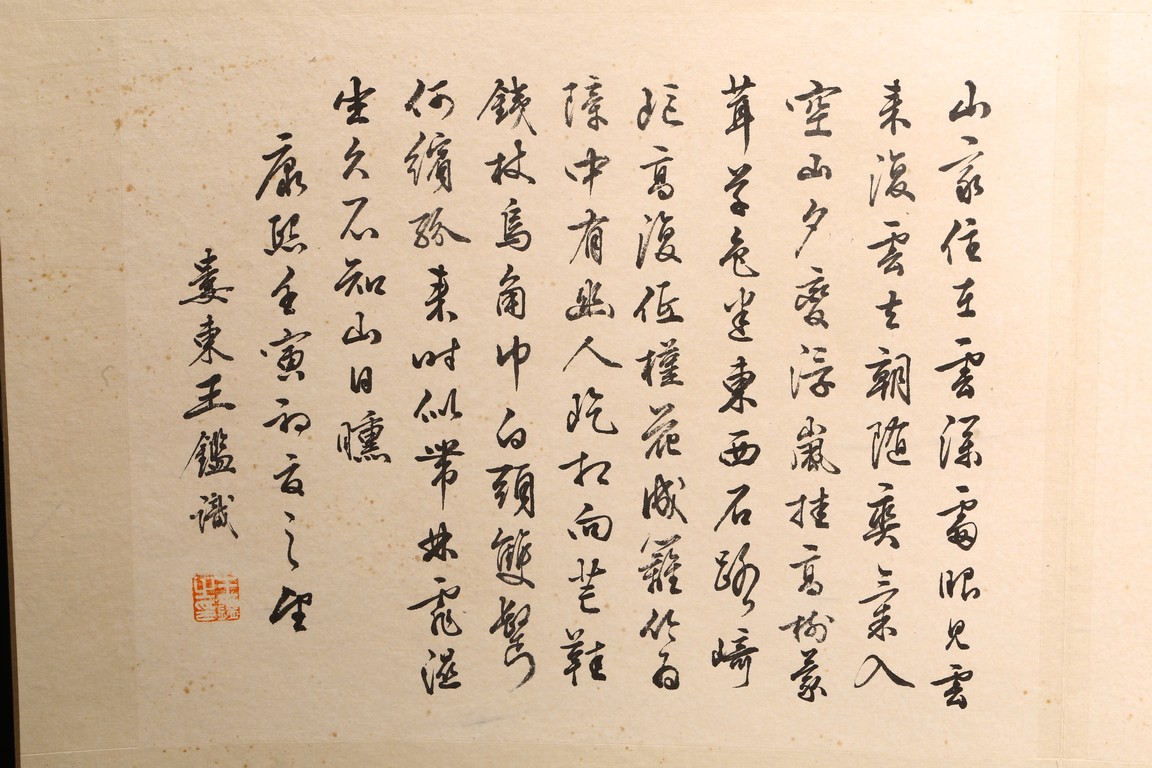 山家住在雲深處眼見雲
来復雲去朝随爽氣入
空山夕變浮嵐挂高樹蒙
茸草色迷東西石路崎
高復低槿花成籬竹為
障中有幽人扶向芒鞋
銕杖烏角巾白頭雙鬢
何繽紛来時似帶林霏濕
坐久不知山日曛
康熙壬寅初夏之望
婁東王鑑識